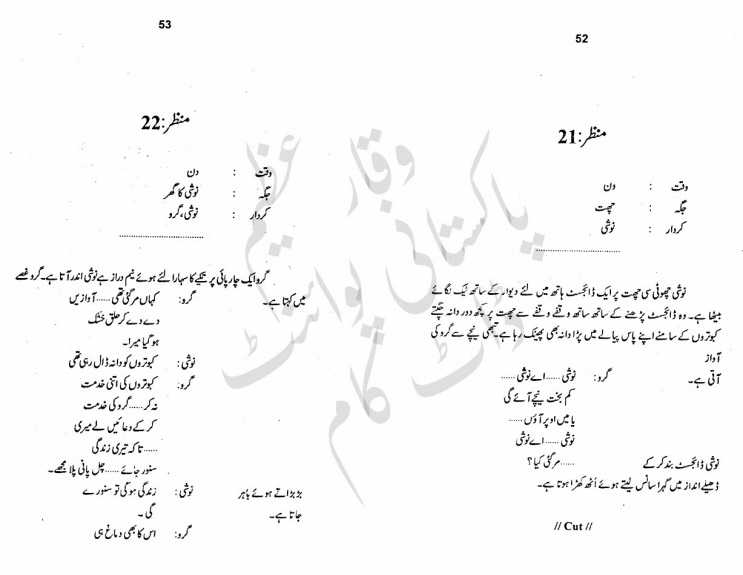 52
منظر:21
وقت : دن
جگہ : چھت
کردار : نوشی
نوشی چھوٹی سی چھت پر ایک ڈائجسٹ ہاتھ میں لئے دیوار کے ساتھ ٹیک لگائے
بیٹھا ہے۔ وہ ڈائجسٹ پڑھنے کے ساتھ ساتھ وقفے وقفے سے چھت پر کچھ دور دانہ چگتے
کبوتروں کے سامنے اپنے پاس پیالے میں پڑا دانہ بھی پھینک رہا ہے۔ تبھی نیچے سے گرو کی
آواز
آتی ہے۔
گرو: نوشی ......اے نوشی ......
کم بخت نیچے آئے گی
یا میں اوپر آؤں ......
نوشی ......اے نوشی
نوشی ڈائجسٹ بند کر کے ......مر گئی کیا؟
ڈھیلے انداز میں گہرا سانس لیتے ہوئے اُٹھ کھڑا ہوتا ہے۔
// Cut //
53
منظر:22
وقت : دن
جگہ : نوشی کا گھر
کردار : نوشی، گرو
گرو ایک چارپائی پر تکیے کا سہارا لئے ہوئے نیم دراز ہے نوشی اندر آتا ہے۔ گرو غصے
میں کہتا ہے۔ گرو: کہاں مر گئی تھی ......آوازیں
دے دے کر حلق خشک
ہو گیا میرا۔
نوشی: کبوتروں کو دانہ ڈال رہی تھی
گرو: کبوتروں کی اتنی خدمت
نہ کر ......گرو کی خدمت
کر کے دعائیں لے میری
......تا کہ تیری زندگی
سنور جائے ......چل پانی پلا مجھے۔
بڑبڑاتے ہوئے باہر نوشی: زندگی ہو گی تو سنورے
جاتا ہے۔ گی۔
گرو: اس کا بھی دماغ ہی
وقار عظیم
پاکستانی پوائنٹ
ڈاٹ کام